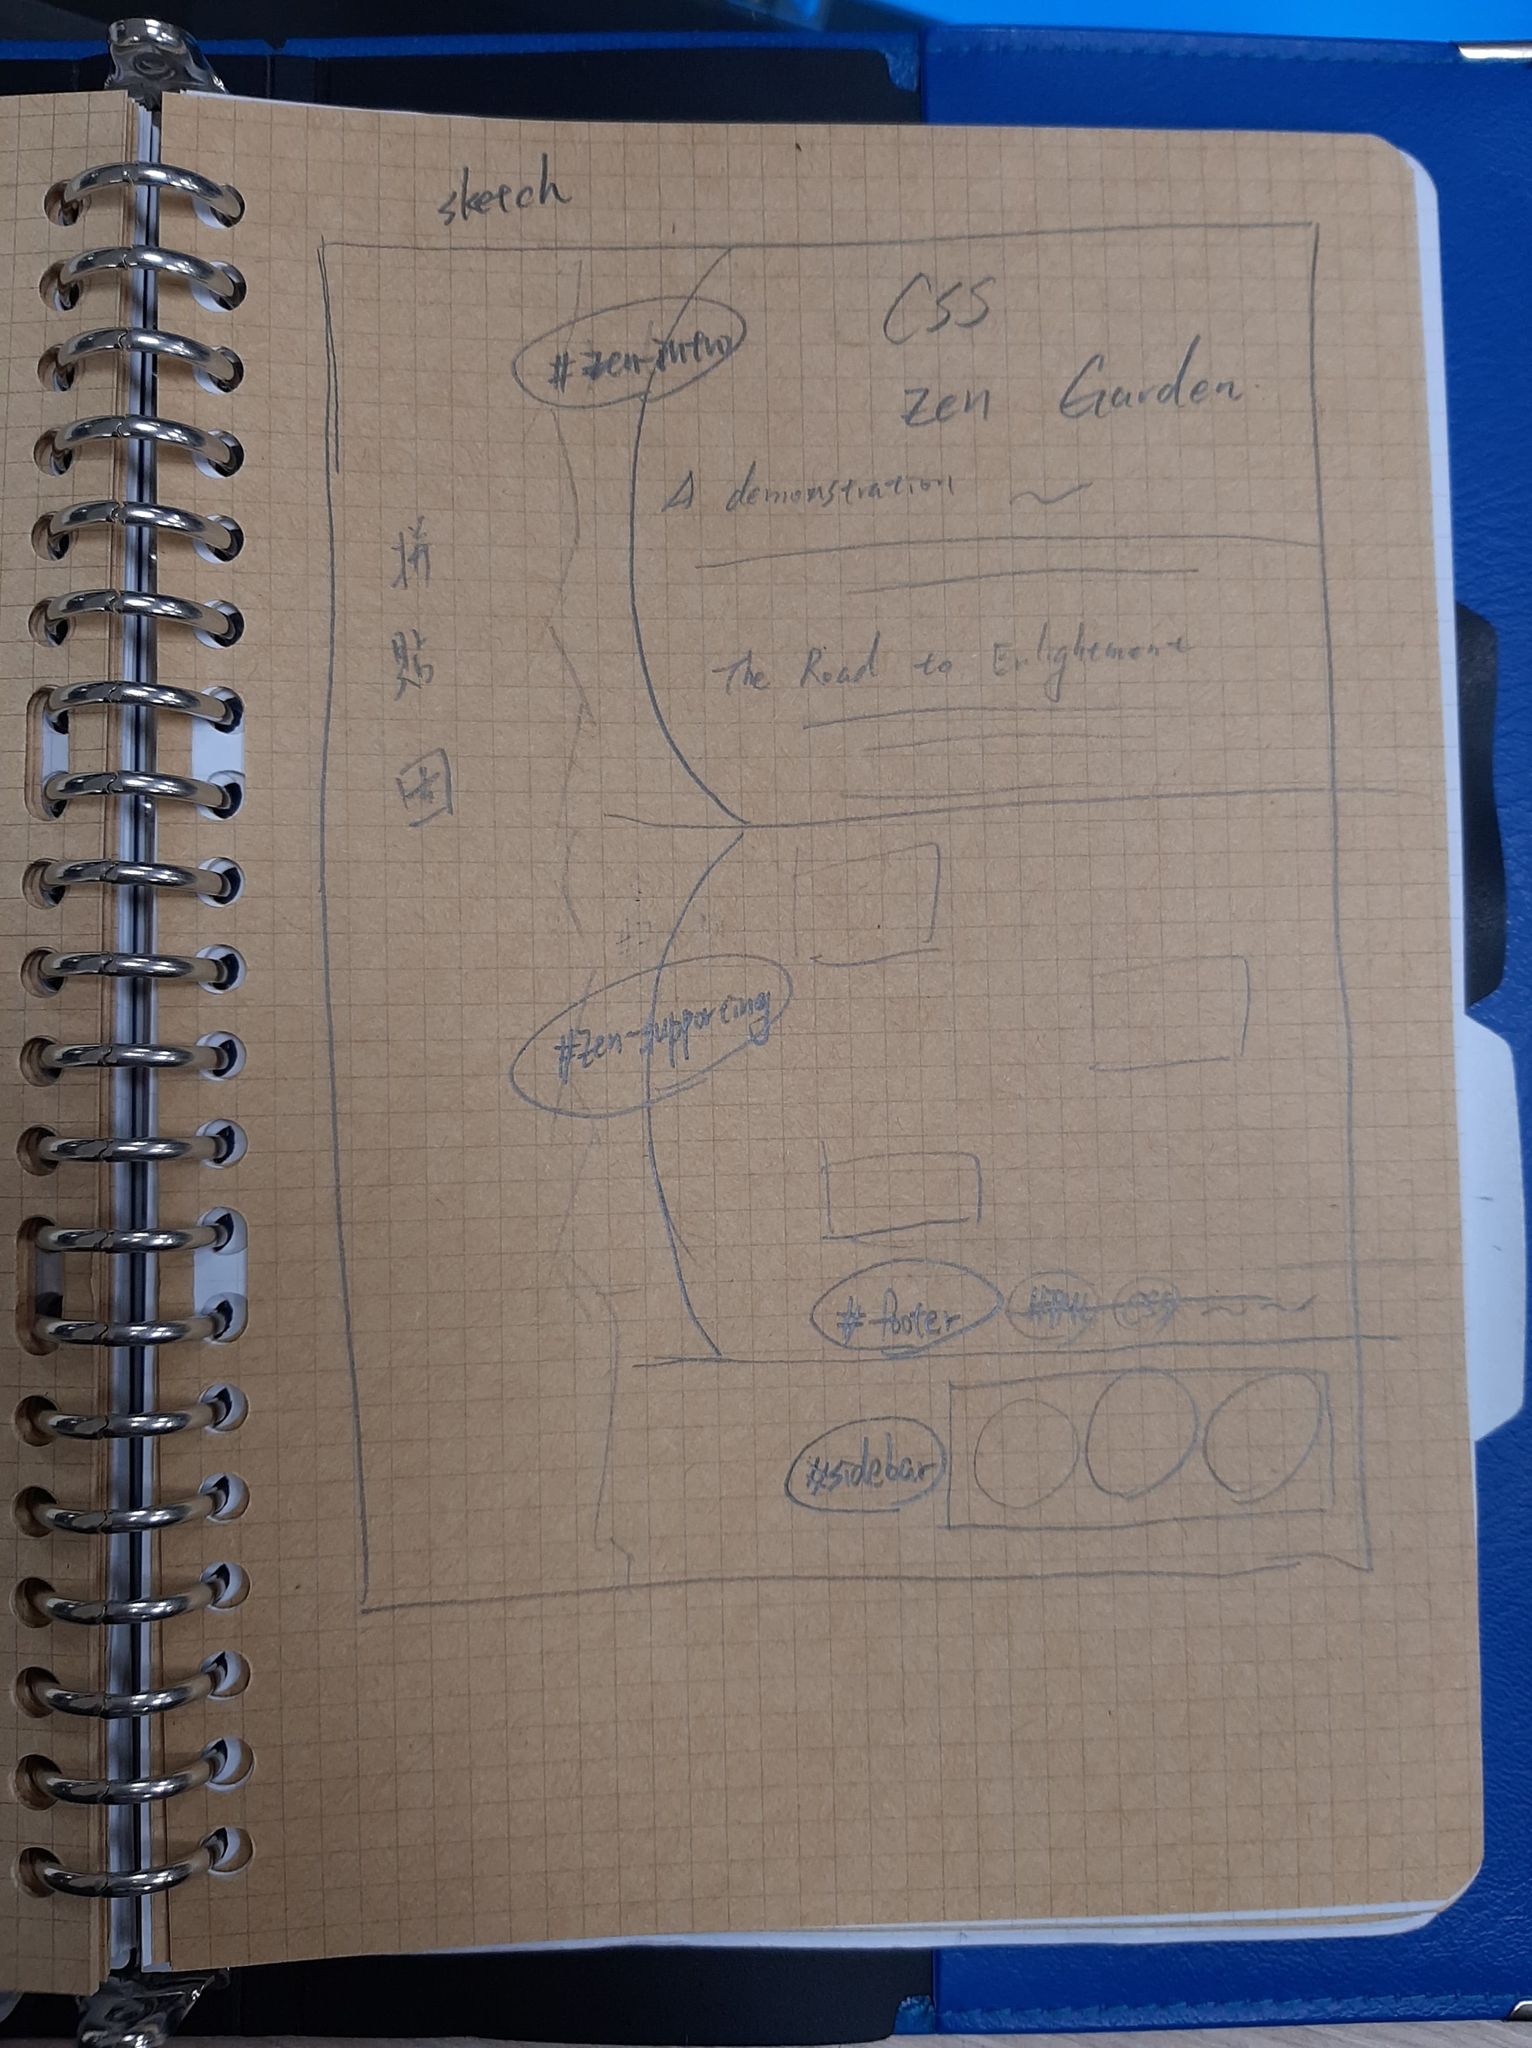 sketch
#zen-intro
CSS
zen Garden
A demonstration
拼
贴
图
The Road to Enlightement
#zen-supporting
#footer HTML CSS
#sidebar